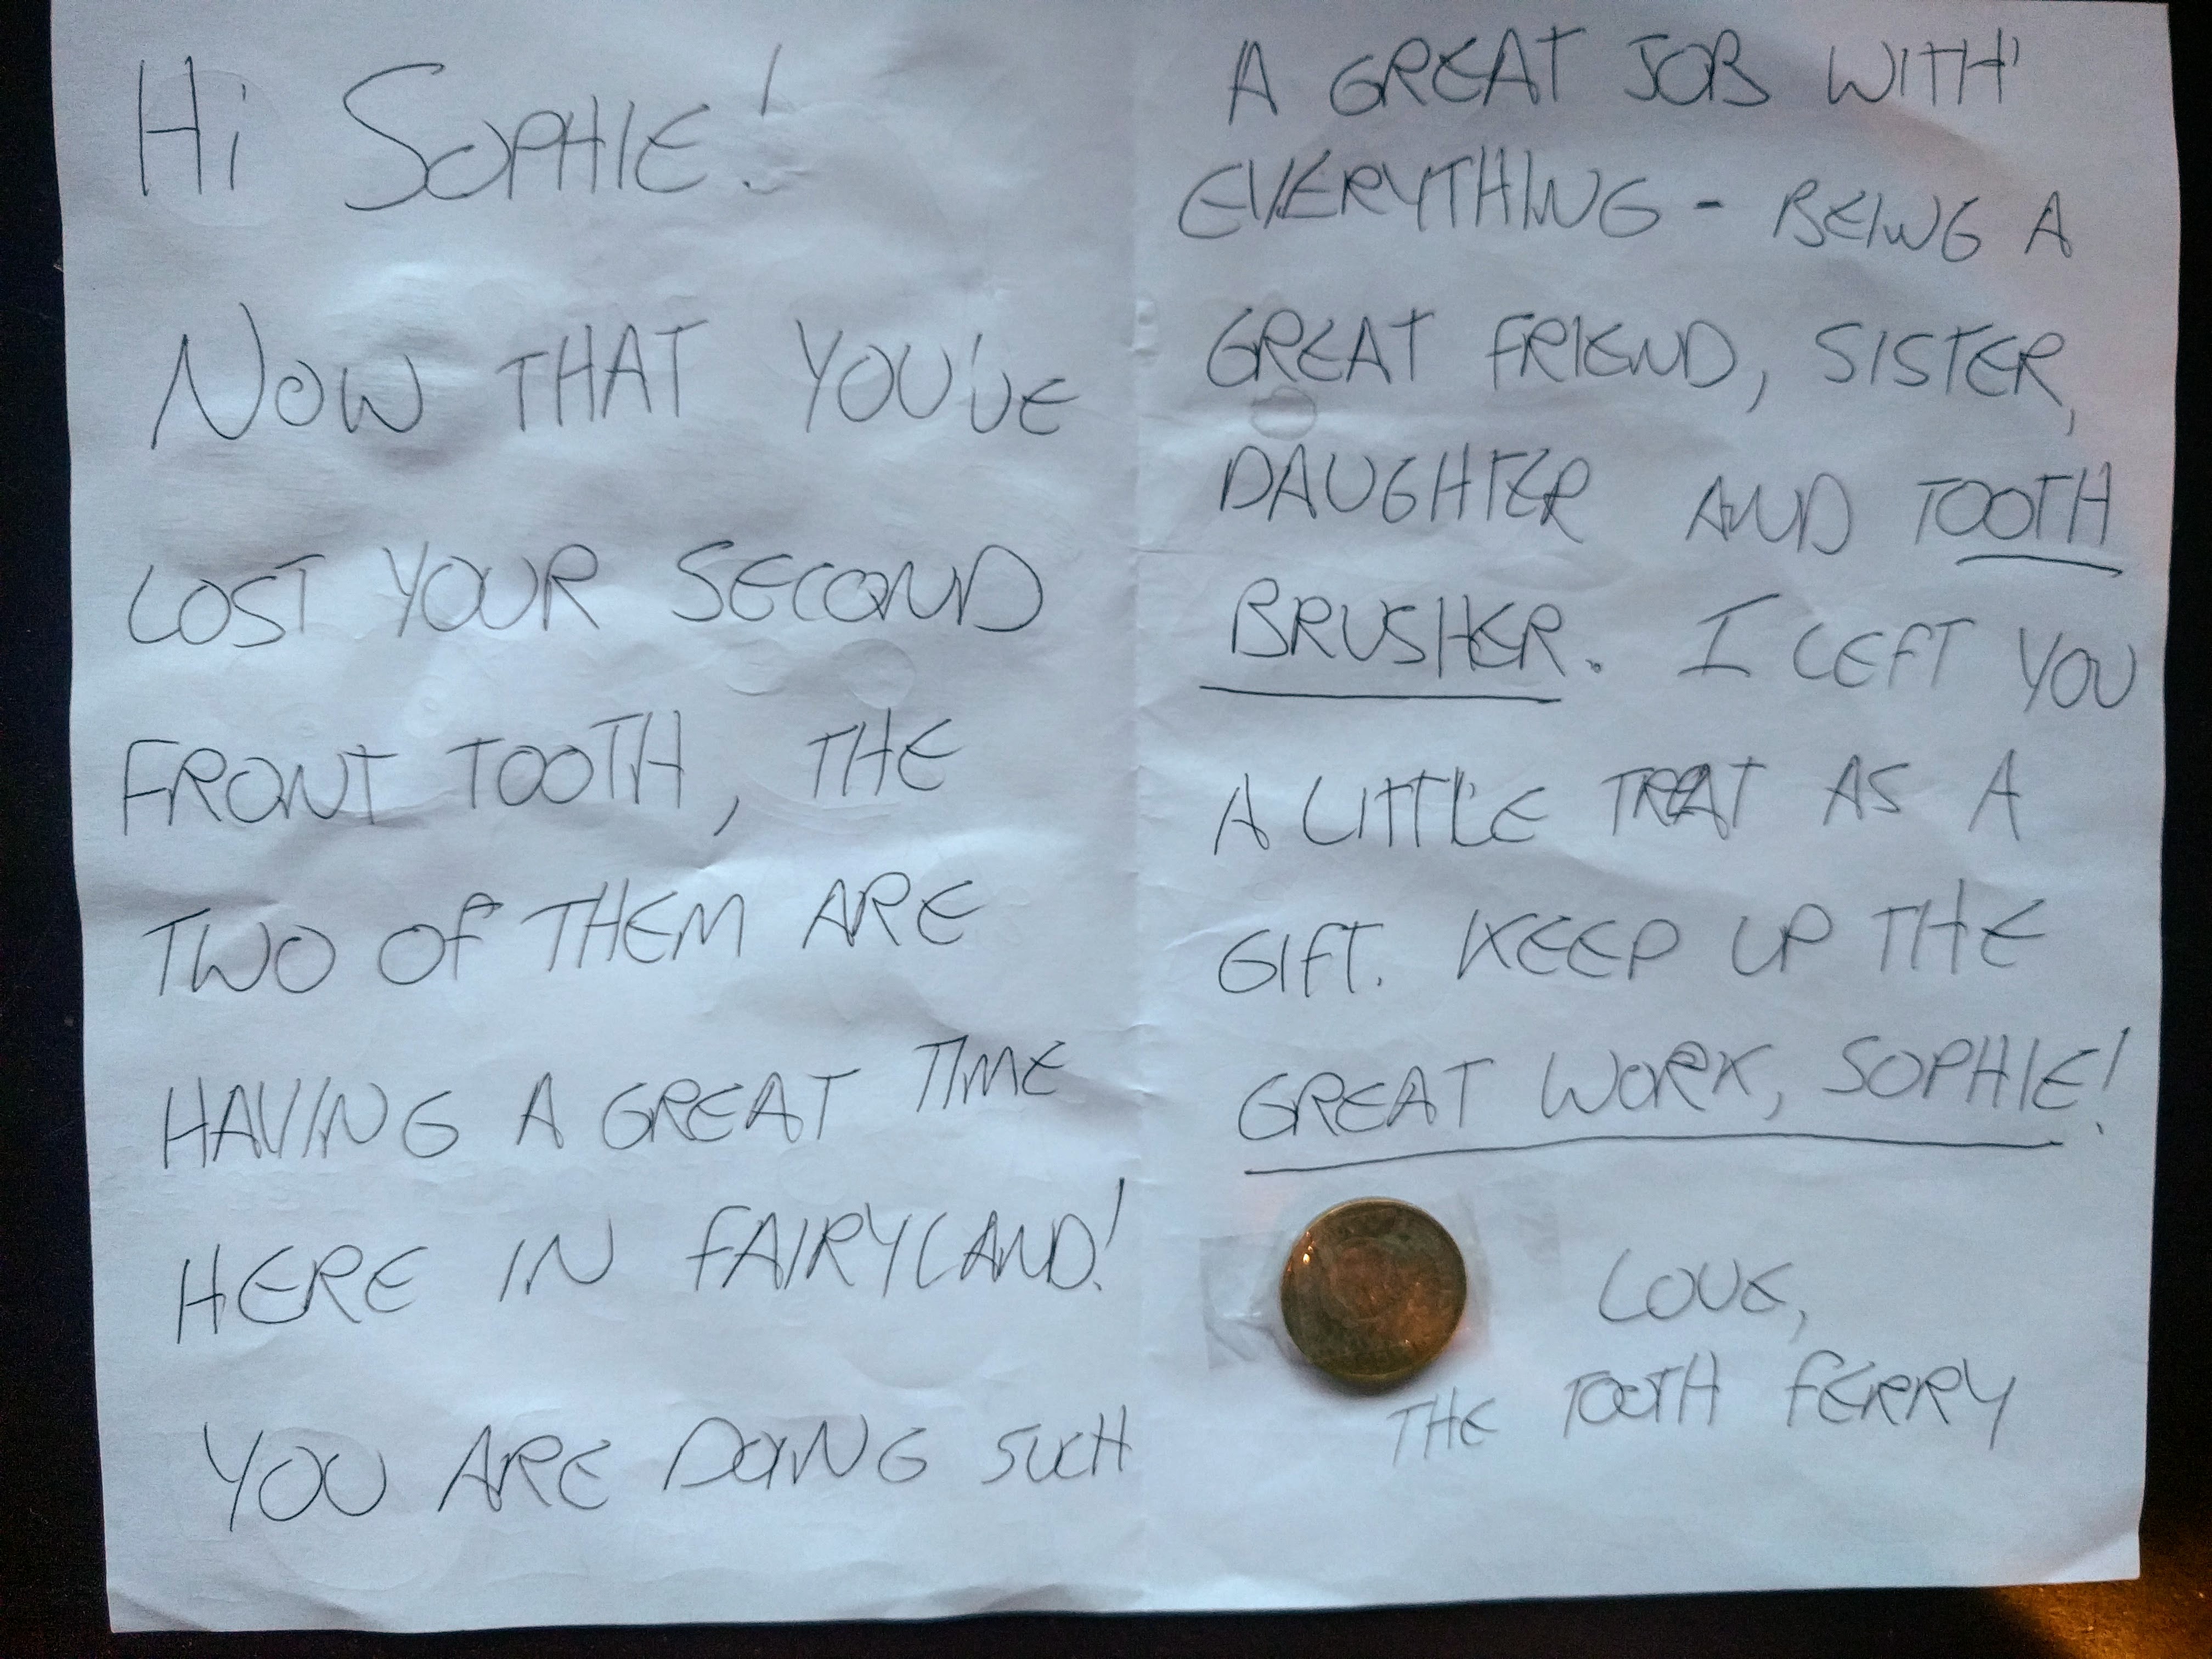 Hi SOPHIE!
NOW THAT YOU'VE
LOST YOUR SECOND
FRONT TOOTH, THE
TWO OF THEM ARE
HAVING A GREAT TIME
HERE IN FAIRYLAND!
YOU ARE DOING SUCH
A GREAT JOB WITH
EVERYTHING - BEING A
GREAT FRIEND, SISTER,
DAUGHTER AND TOOTH
BRUSHER. I LEFT YOU
A LITTLE TREAT AS A
GIFT. KEEP UP THE
GREAT WORK, SOPHIE!
LOVE,
THE TOOTH FERRY